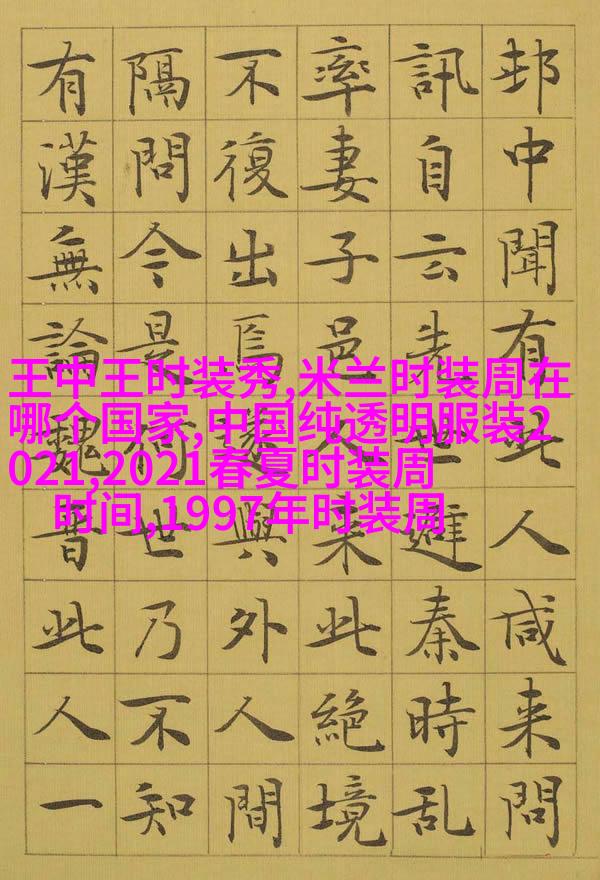 邨中聞有此人咸来問
訊自云先世避秦時乱
率妻子邑人来此絶境
不復出焉遂與外人間
隔問今是何世乃不知
有漢無論魏晋此人一
王中王时装秀,米兰时装周在
哪个国家,中国纯透明服装2
021,2021春夏时装周
时间,1997年时装周